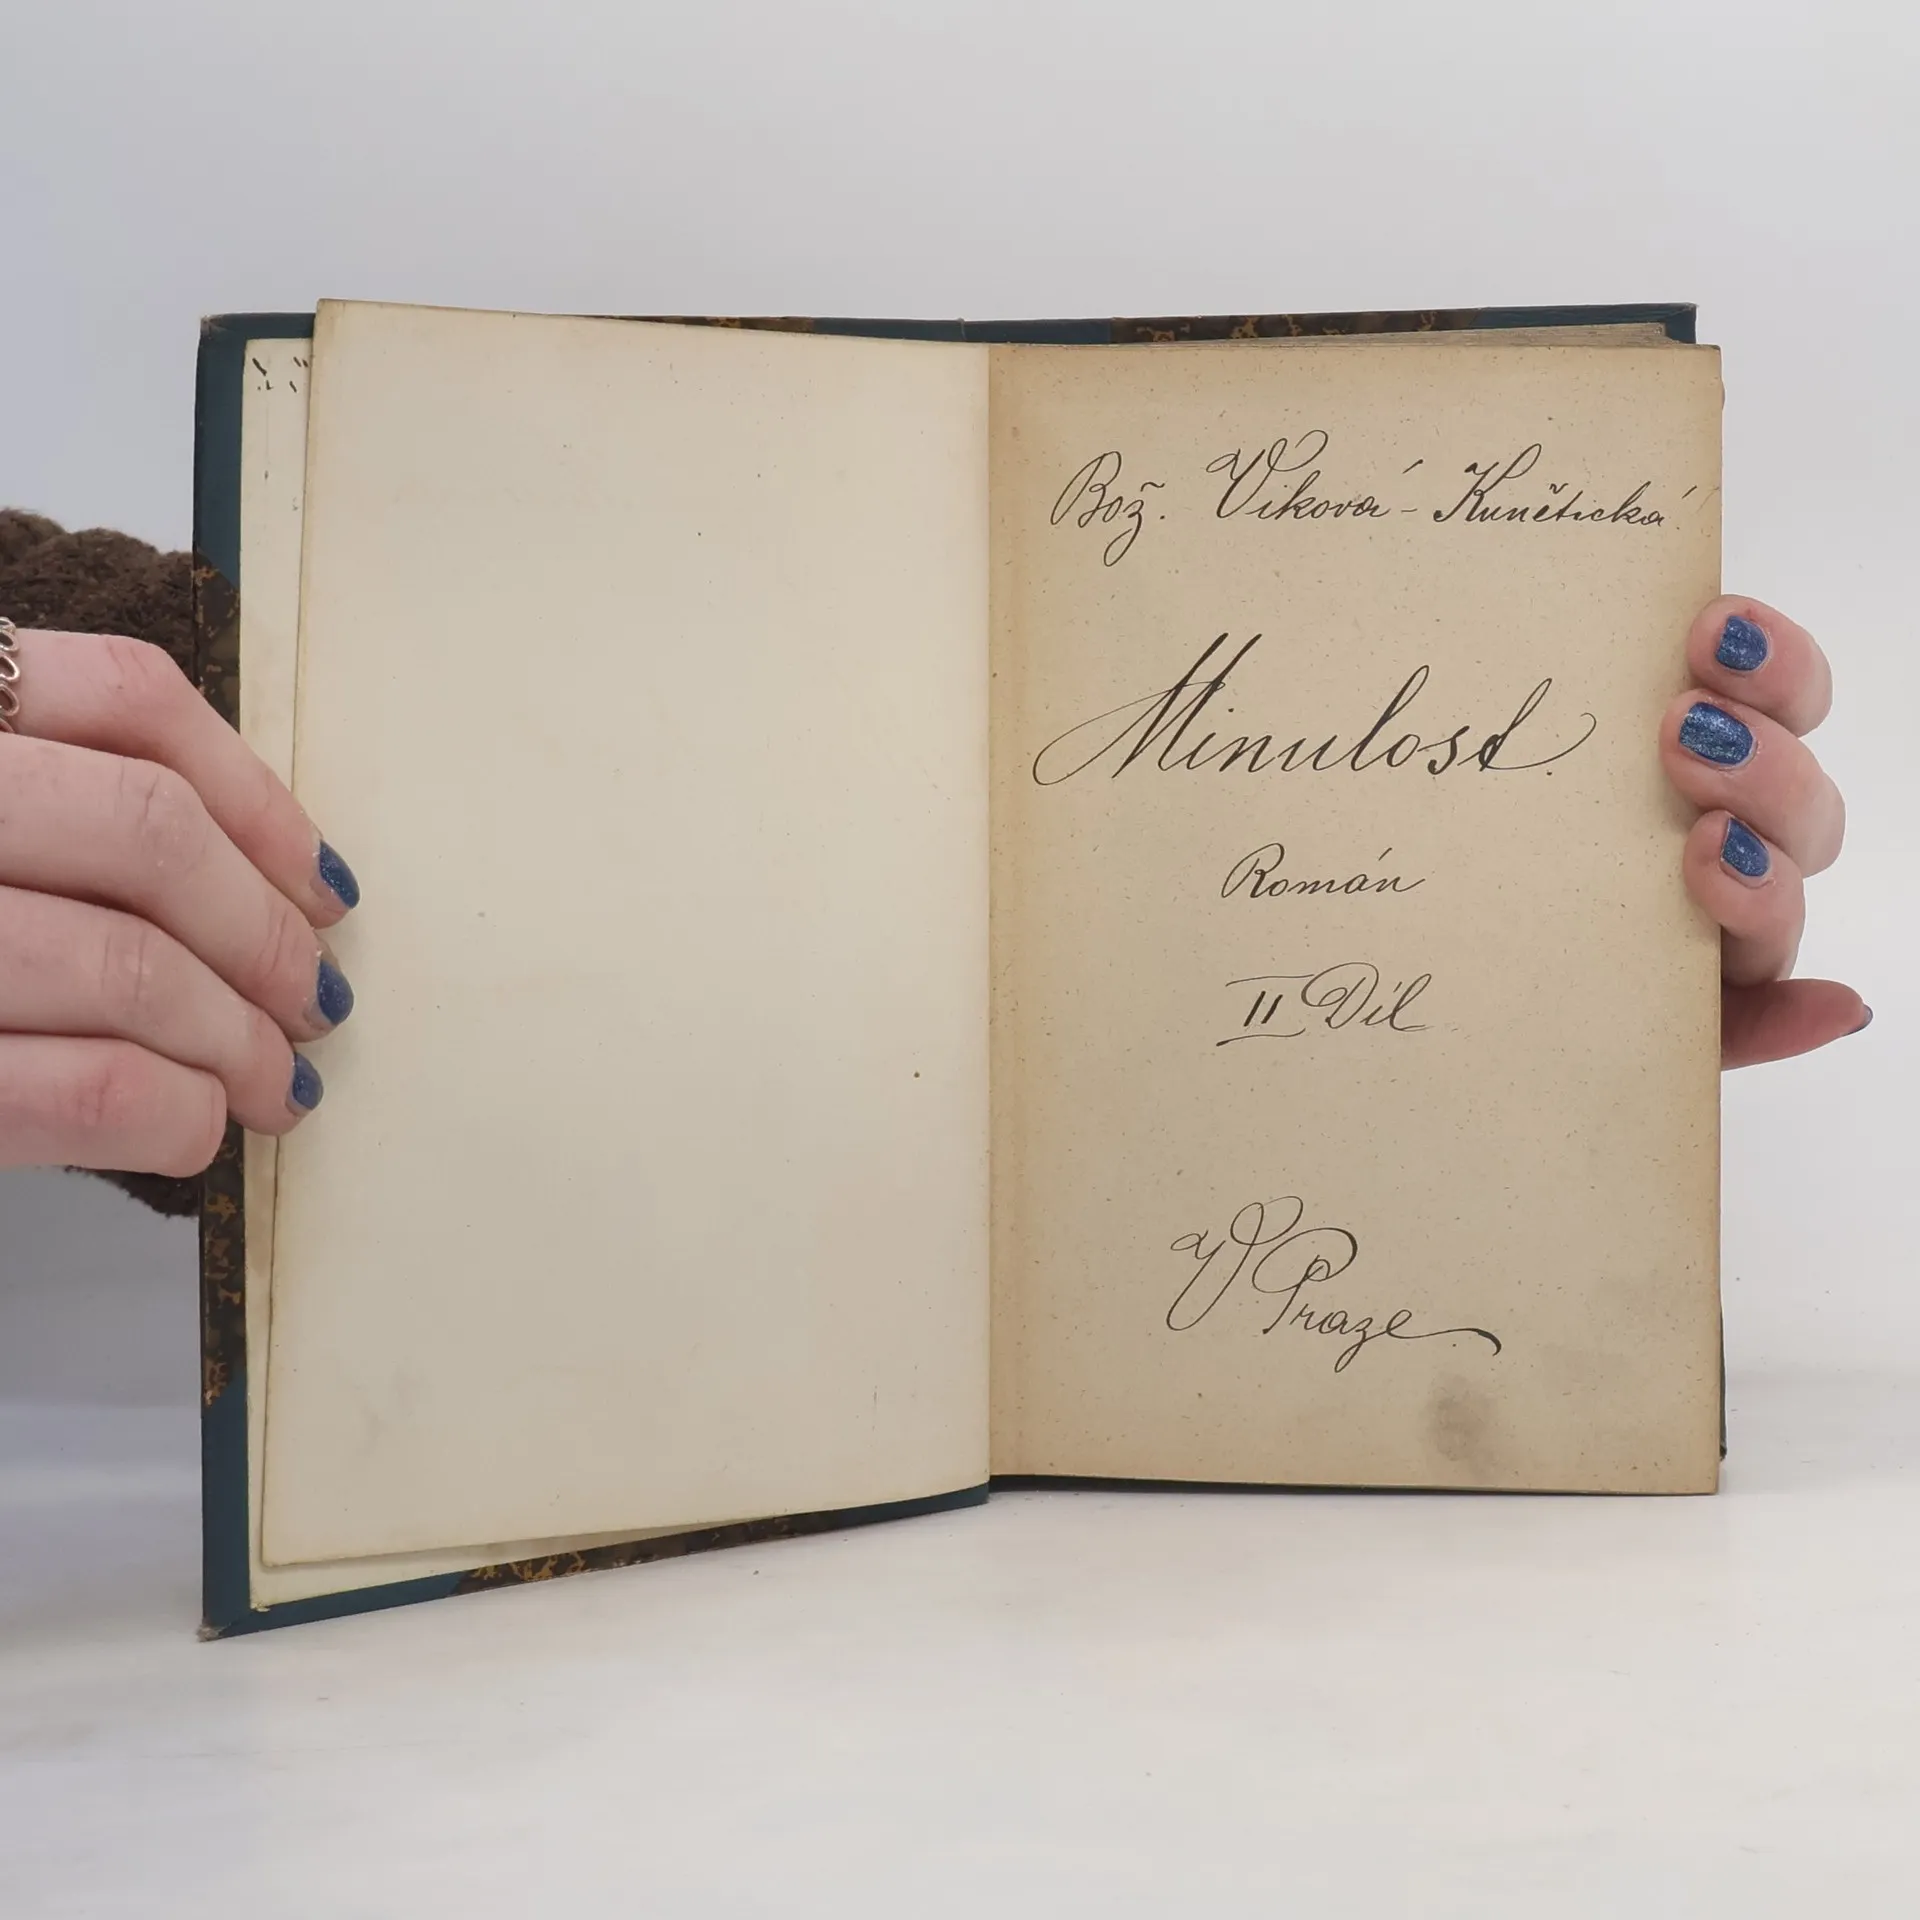 Bož. Viková-Kunětická.
Minulost.
Román
II Díl
V Praze